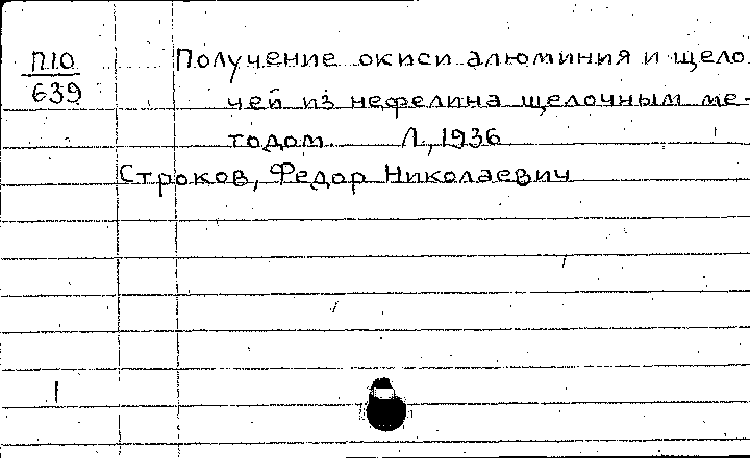 П10
639
Получение окиси алюминия и щело
чей из нефелина щелочным ме-
тодом. Л., 1936
Строков, Федор Николаевич
1